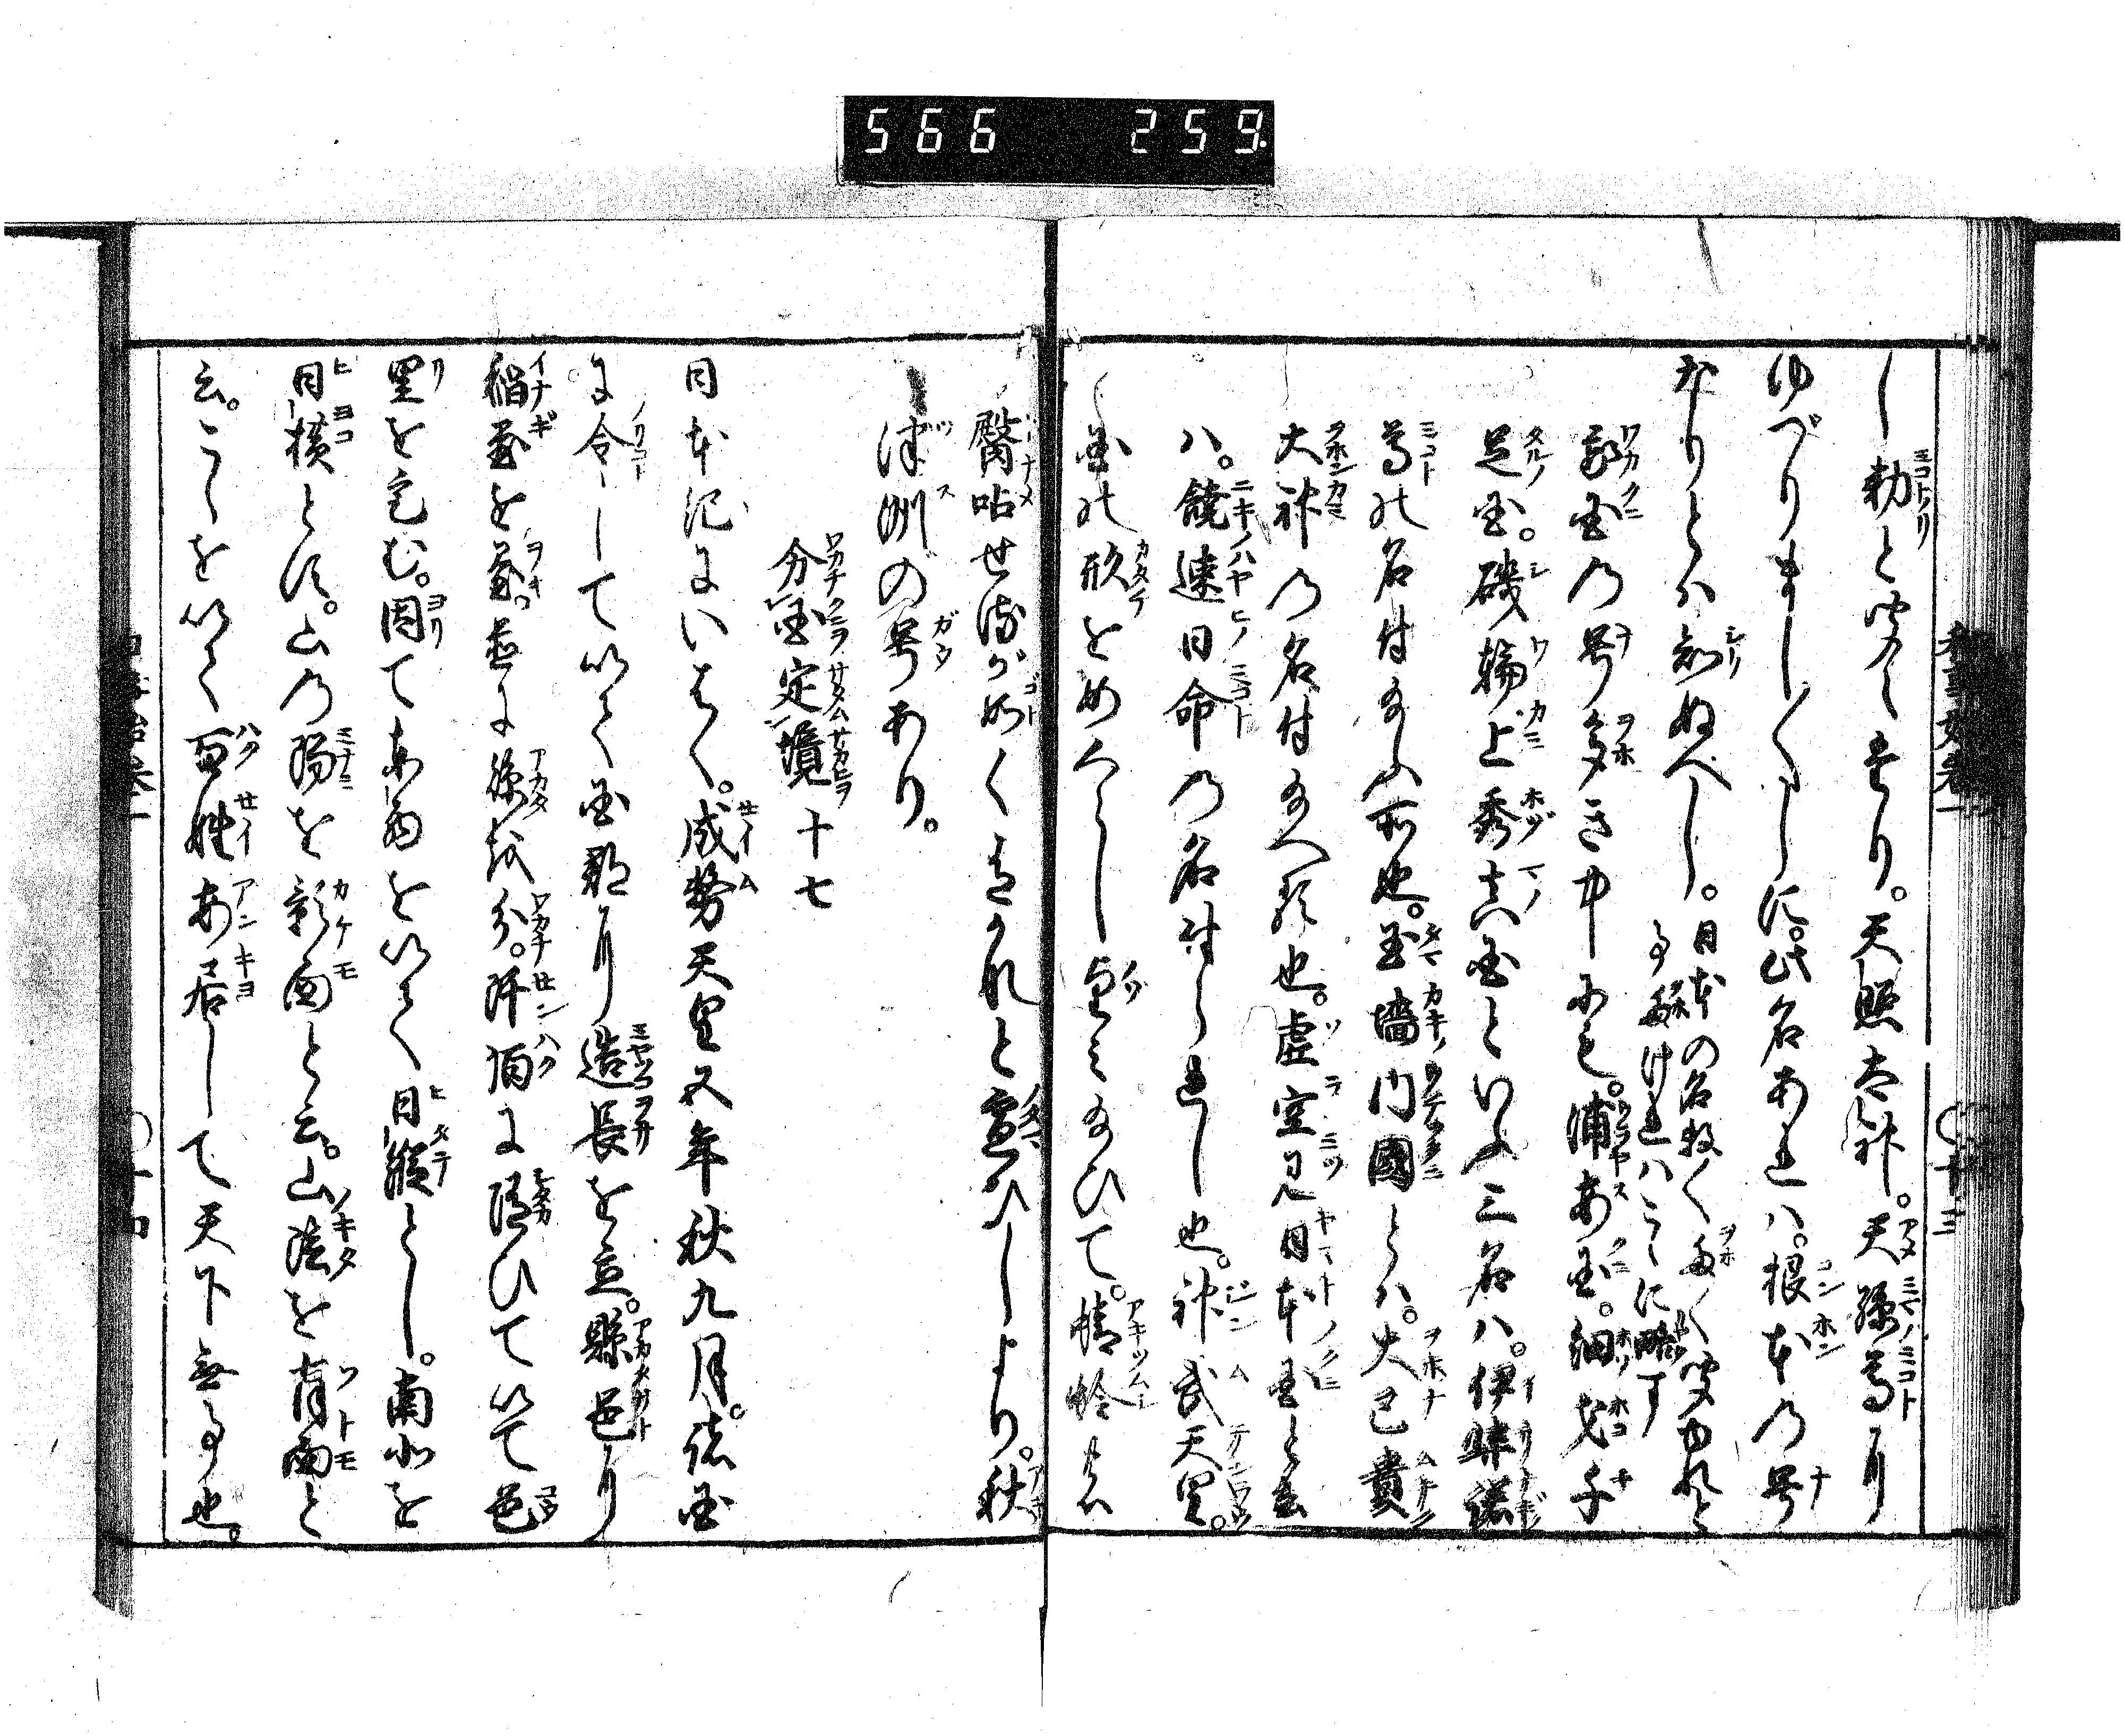 566 259
和事始巻一 〇十三
し勅と定り。天照太神。天孫尊に
ゆづりましましに。此名あれハ。根本の号
なりとハ知ぬべし。日本の名数く多く定れど
事繁けれハこゝに略す
我国の号多き中にも。浦安国。細戈千
足国。磯輪上秀真国といふ三名ハ。伊弉諾
尊の名付給ふ所也。玉墻内國とハ。大己貴
大神の名付給へる也。虚空見日本国と云
ハ。饒速日命の名付られし也。神武天皇。
国の形をめくらし望み給ひて。蜻蛉の
臀呫せるが如くなれと宣ひしより。秋
津洲の号あり。
分国定境十七
日本紀にいはく。成務天皇五年秋九月。諸国
に令して以て国郡に造長を立。縣邑に
稲置を置。並に縣を分。阡陌に隨ひて以て邑
里を定む。因て東西を以て日縦とし。南北を
日横とす。山の陽を影面と云。山陰を背面と
云。こゝを以て百姓安居して天下無事也。